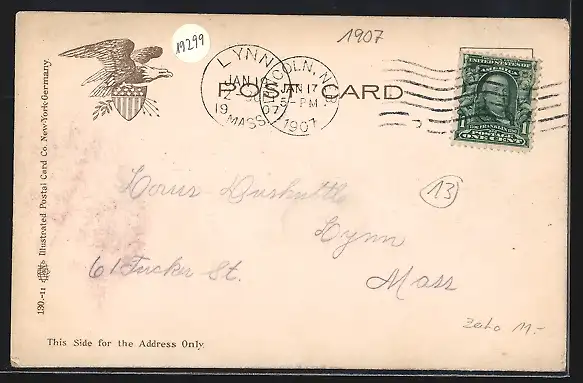 19299
1907
POST CARD
LYNN
JAN 1
19 07
MASS
LINCOLN, NEB
JAN 17
5 - PM
1907
UNITED STATES OF AMERICA
FRANKLIN
POSTAGE
ONE CENT
130.-11 Illustrated Postal Card Co. New-York-Germany.
Louis
13
Lynn
61 Tucker St.
Mass
This Side for the Address Only.